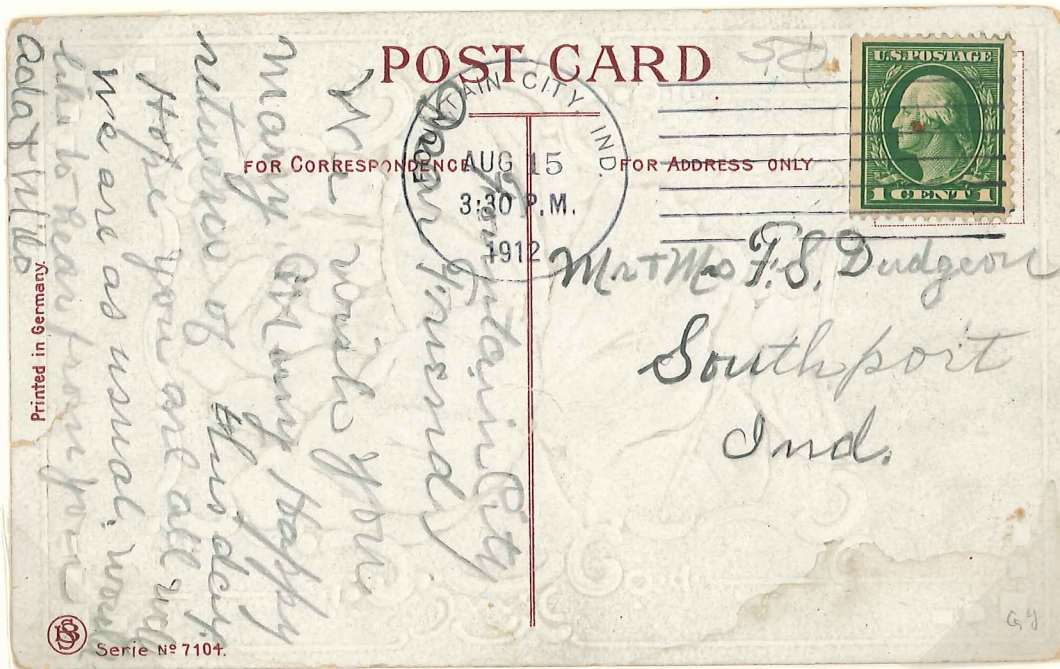 POST CARD
FOR CORRESPONDENCE
FOR ADDRESS ONLY
U.S. POSTAGE
1 CENT 1
FOUNTAIN CITY, IND.
AUG 15
3:30 P.M.
1912
Mr + Mrs F. S. Dudgeon
Southport
Ind.
Fountain City
Dear Friends
We wish you
Many Many Happy
returns of this day.
Hope you are all well
We are as usual. would
like to hear from you
Printed in Germany.
Serie No 7104.